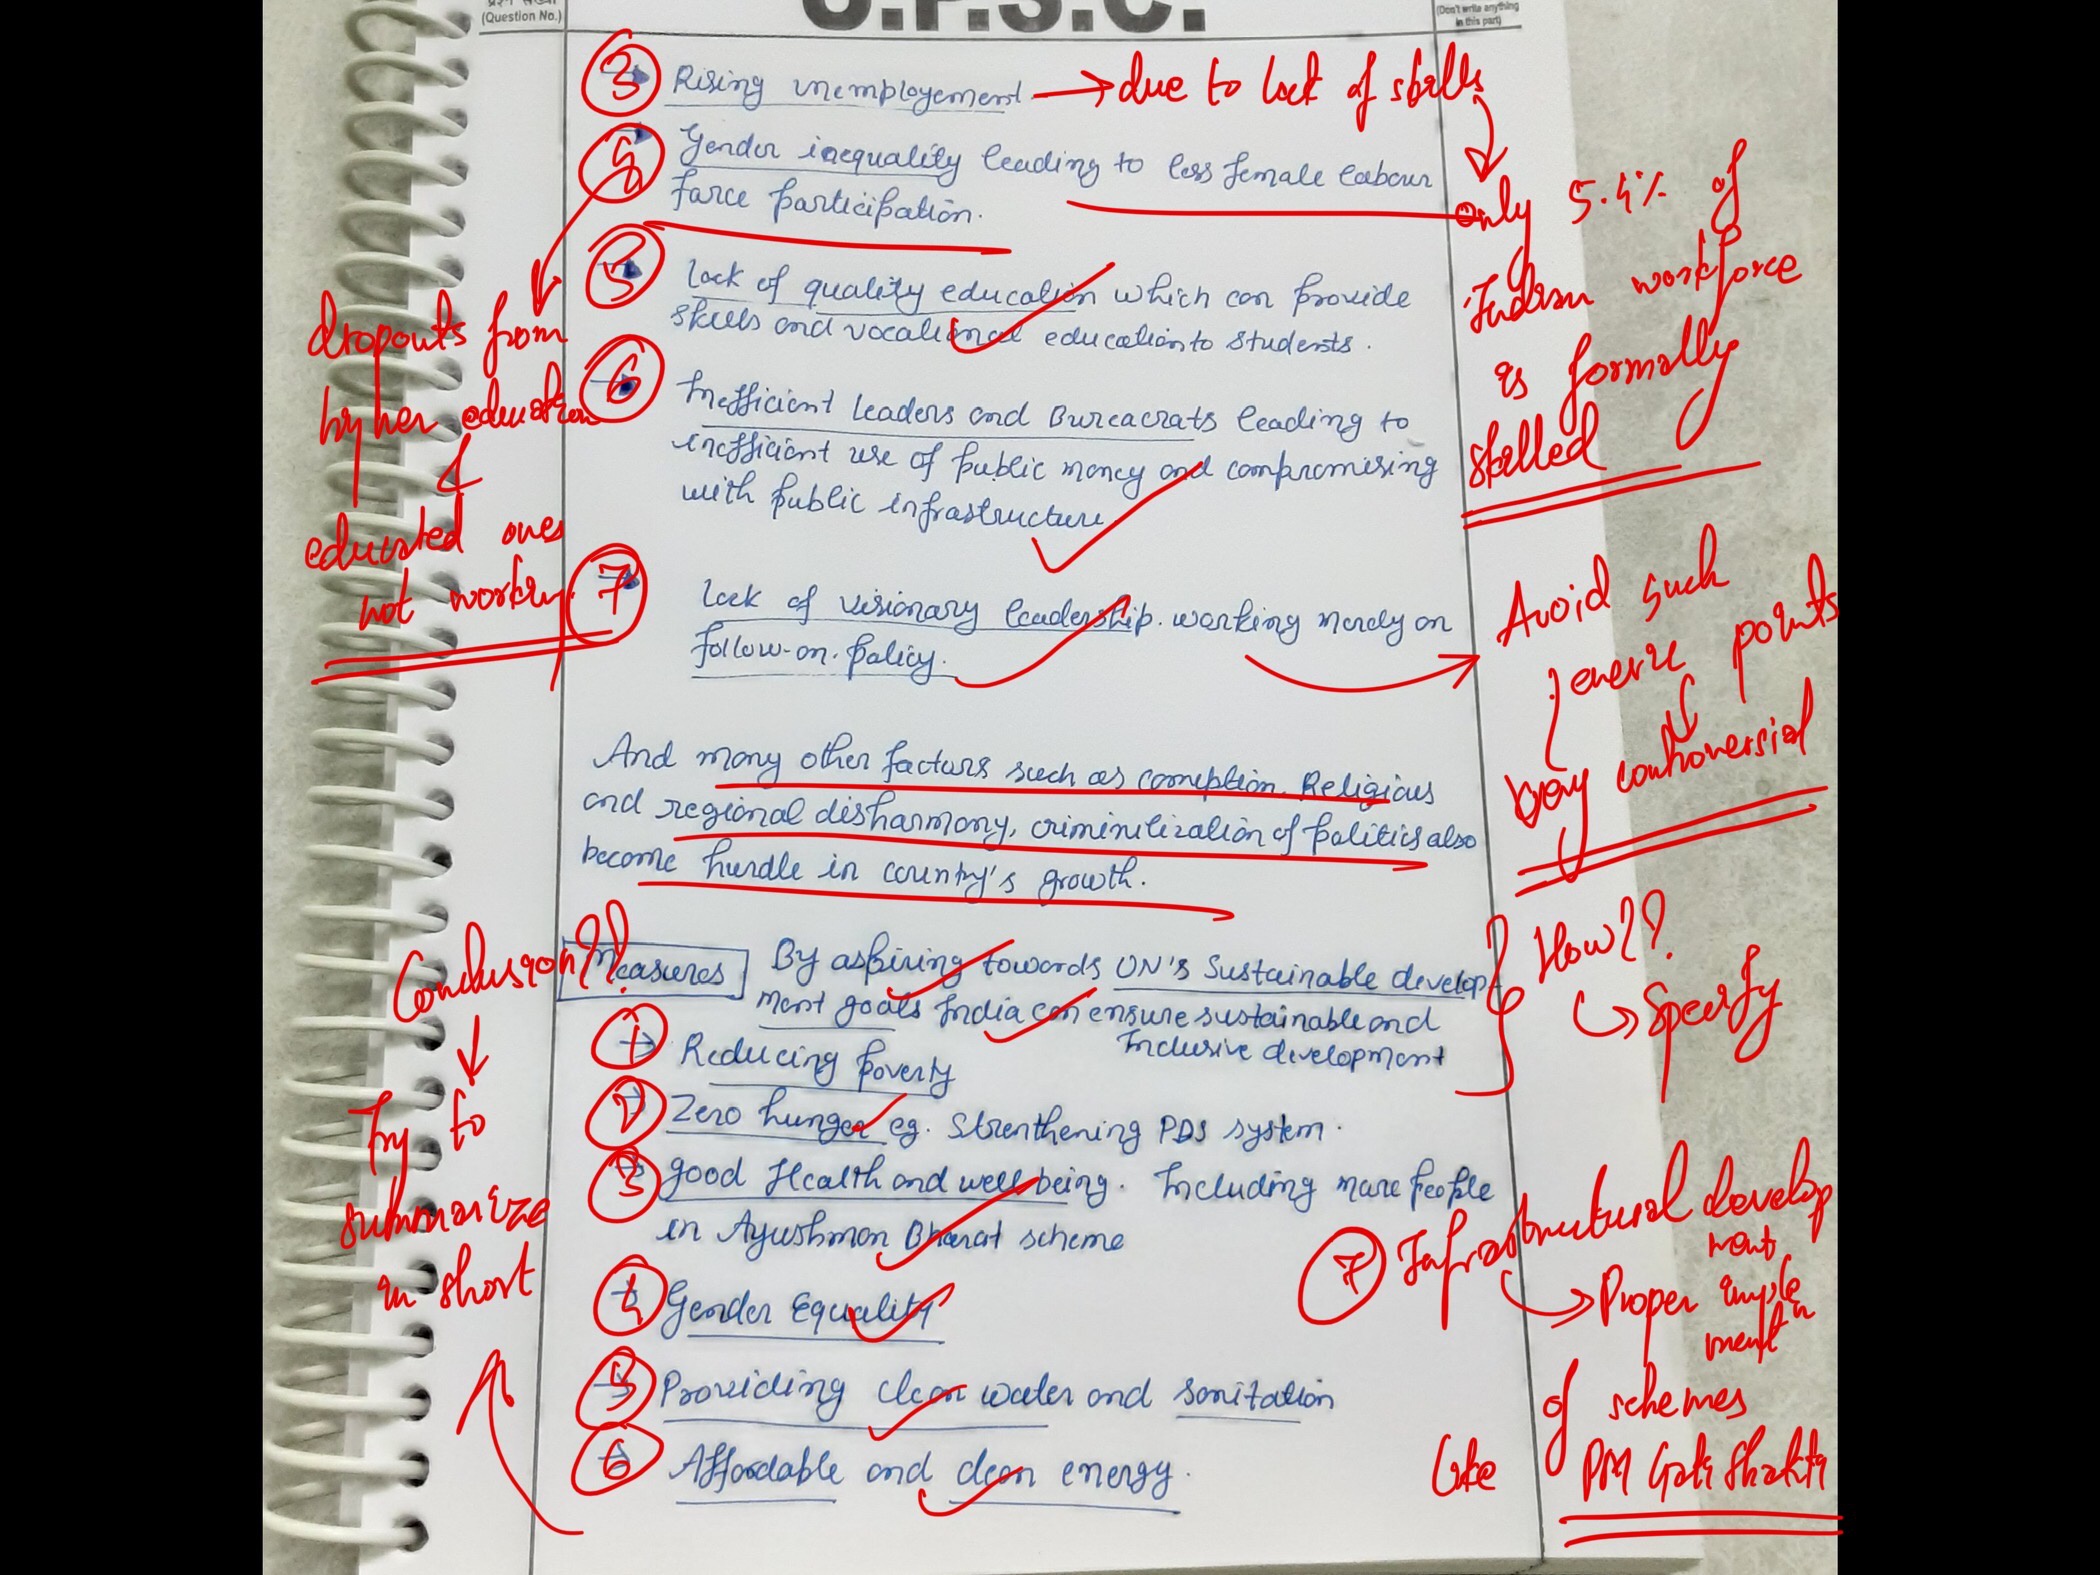 (Question No.)
U.P.S.C.
(Don't write anything
in this part)
3 Rising unemployement → due to lack of skills
4 Gender inequality leading to less female labour
farce participation.
only 5.4% of
Indian workforce
is formally
skilled
dropouts from
higher education
educated ones
not working
5 lack of quality education which can provide
skills and vocational education to students.
6 Inefficient leaders and Bureacrats leading to
inefficient use of public money and compromising
with public infrastructure
7 lack of visionary leadership. working merely on
follow-on-policy.
Avoid such
generic points
very controversial
And many other factors such as corruption. Religious
and regional disharmony, criminilization of politics also
become hurdle in country's growth.
Conclusion??
Try to
summarize
in short
Measures By aspiring towards UN's Sustainable develop
ment goals India can ensure sustainable and
Inclusive development
How??
Specify
1 Reducing poverty
2 Zero hunger eg. Strenthening PDS system.
3 good Health and well being. Including more people
in Ayushman Bharat scheme
4 Gender Equality
5 Providing clean water and sanitation
6 Affordable and clean energy.
7 Infrastructural develop
ment
Proper imple
mentn
of schemes
like PM Gati Shakti